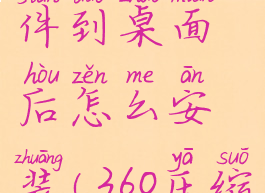 件到桌面
hòu zěn me ān
后怎么安
zhuāng yā suō
装(360压缩